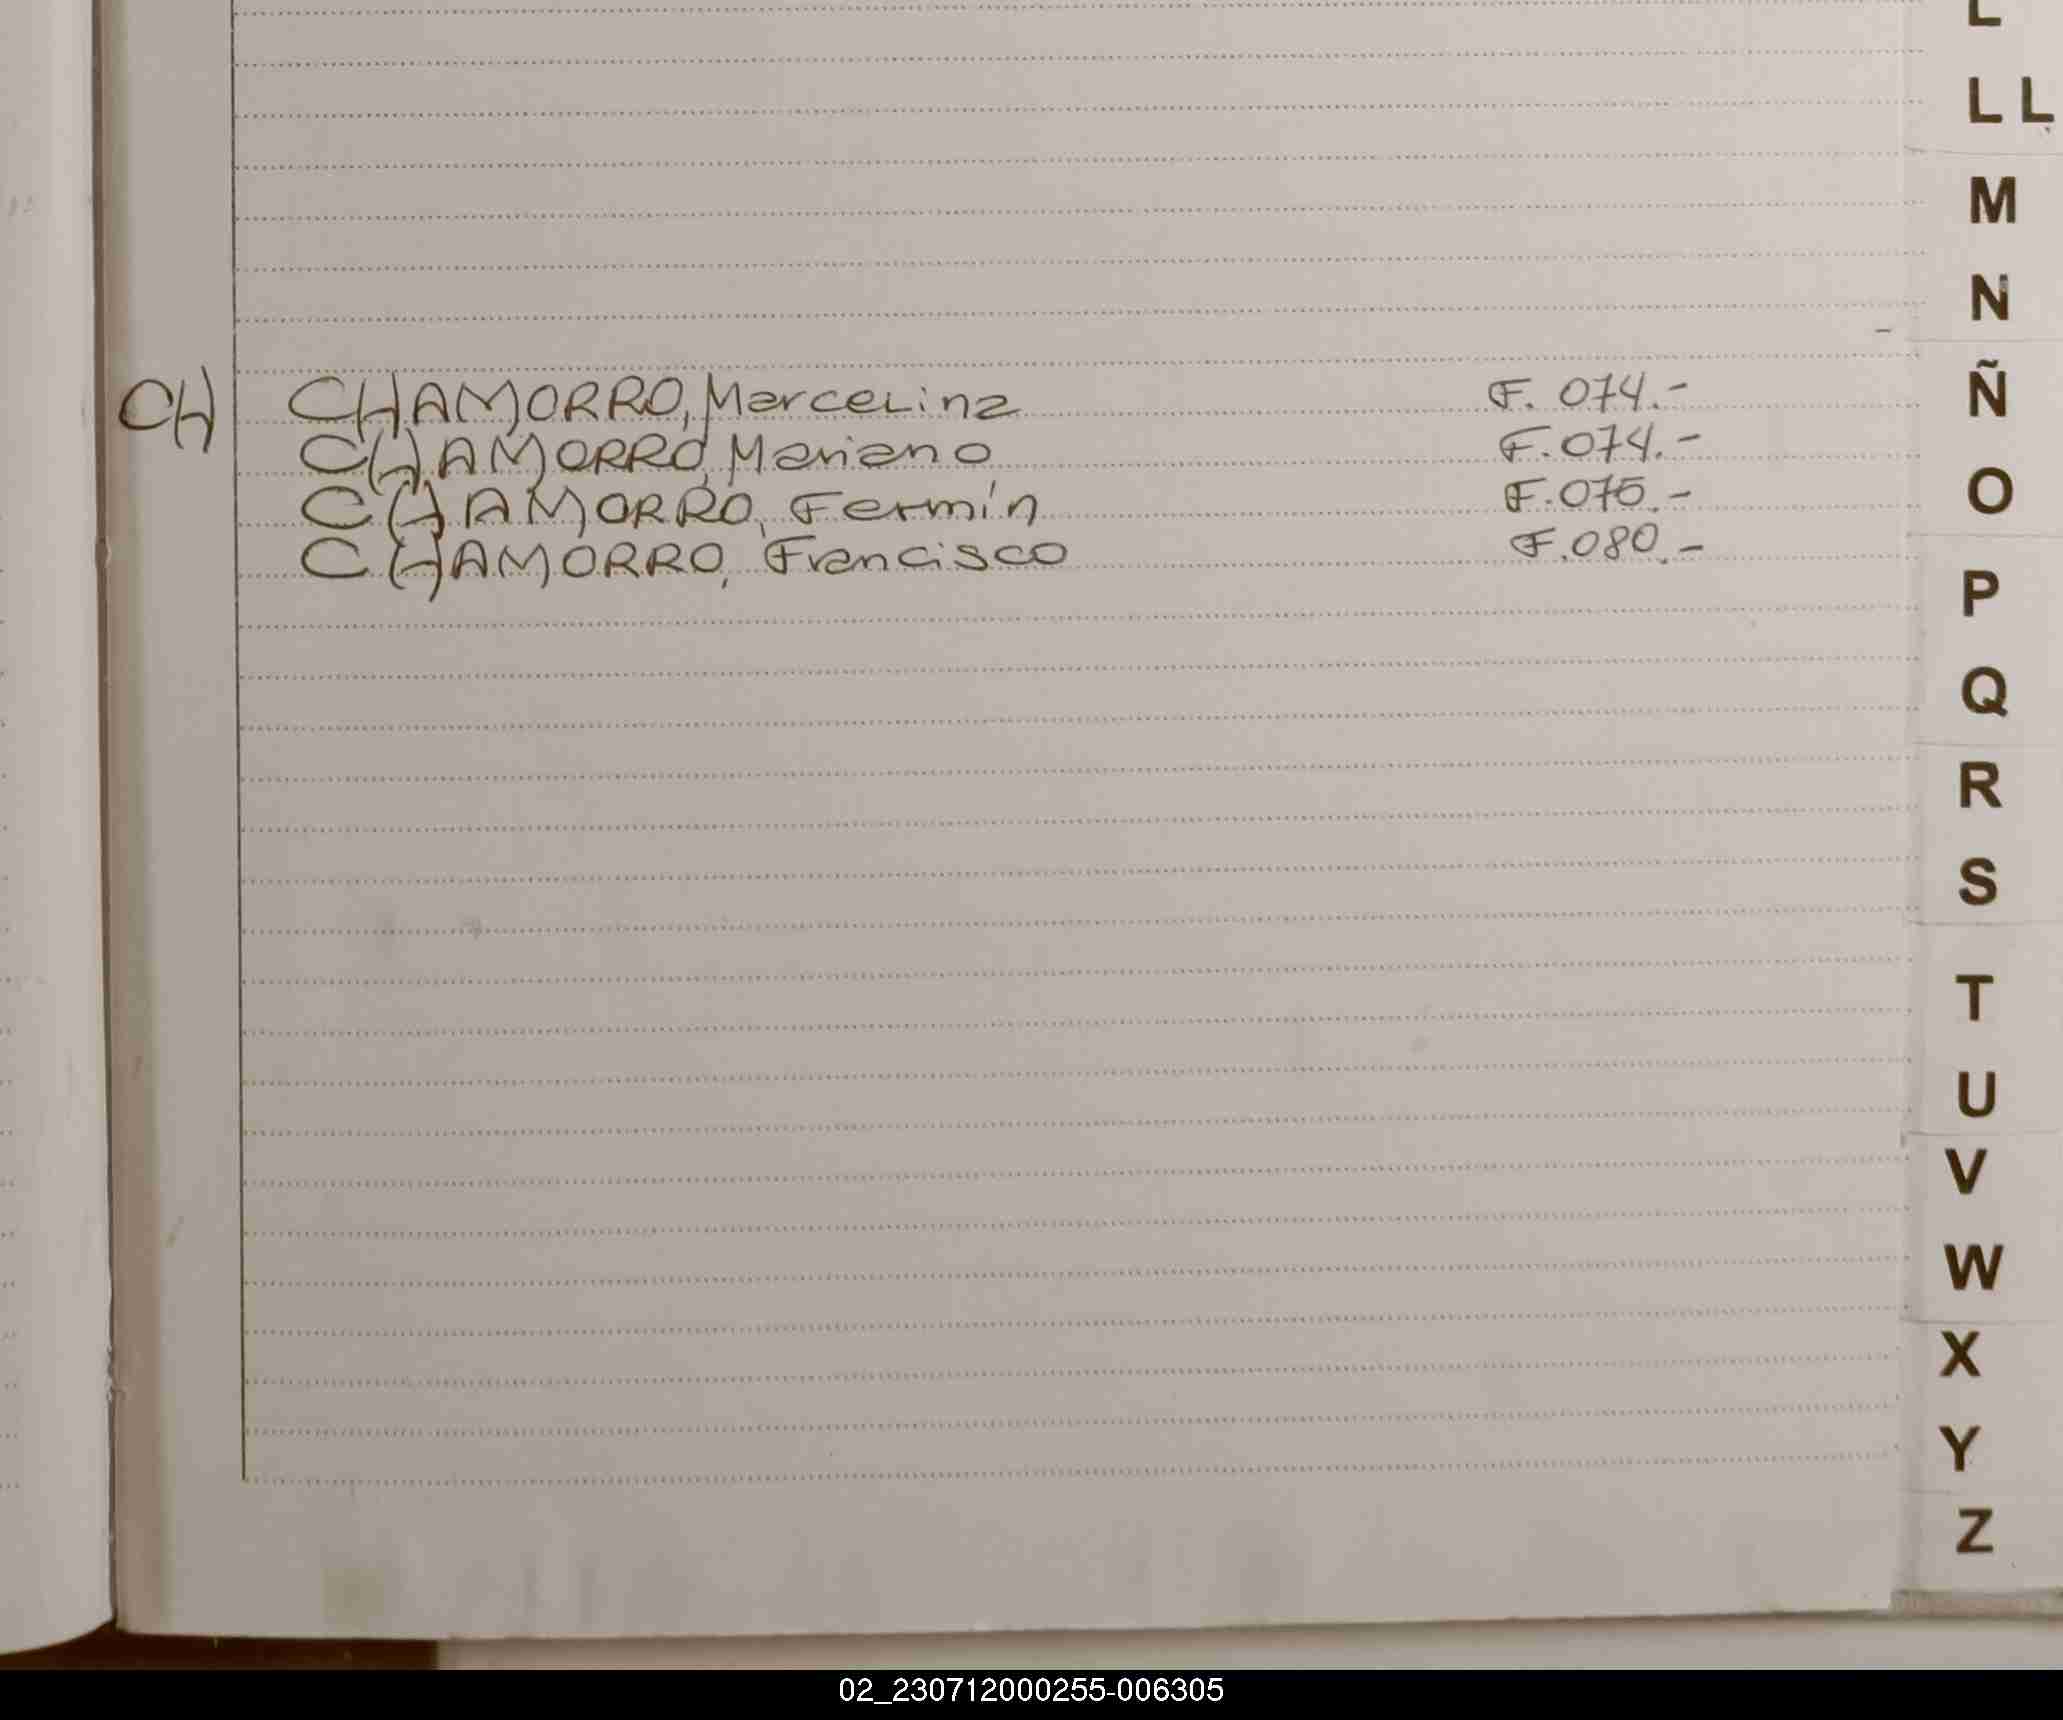 CH CHAMORRO, Marcelina F. 074.-
CHAMORRO, Mariano F. 074.-
CHAMORRO, Fermín F. 075.-
CHAMORRO, Francisco F. 080.-
L
LL
M
N
Ñ
O
P
Q
R
S
T
U
V
W
X
Y
Z
02_230712000255-006305